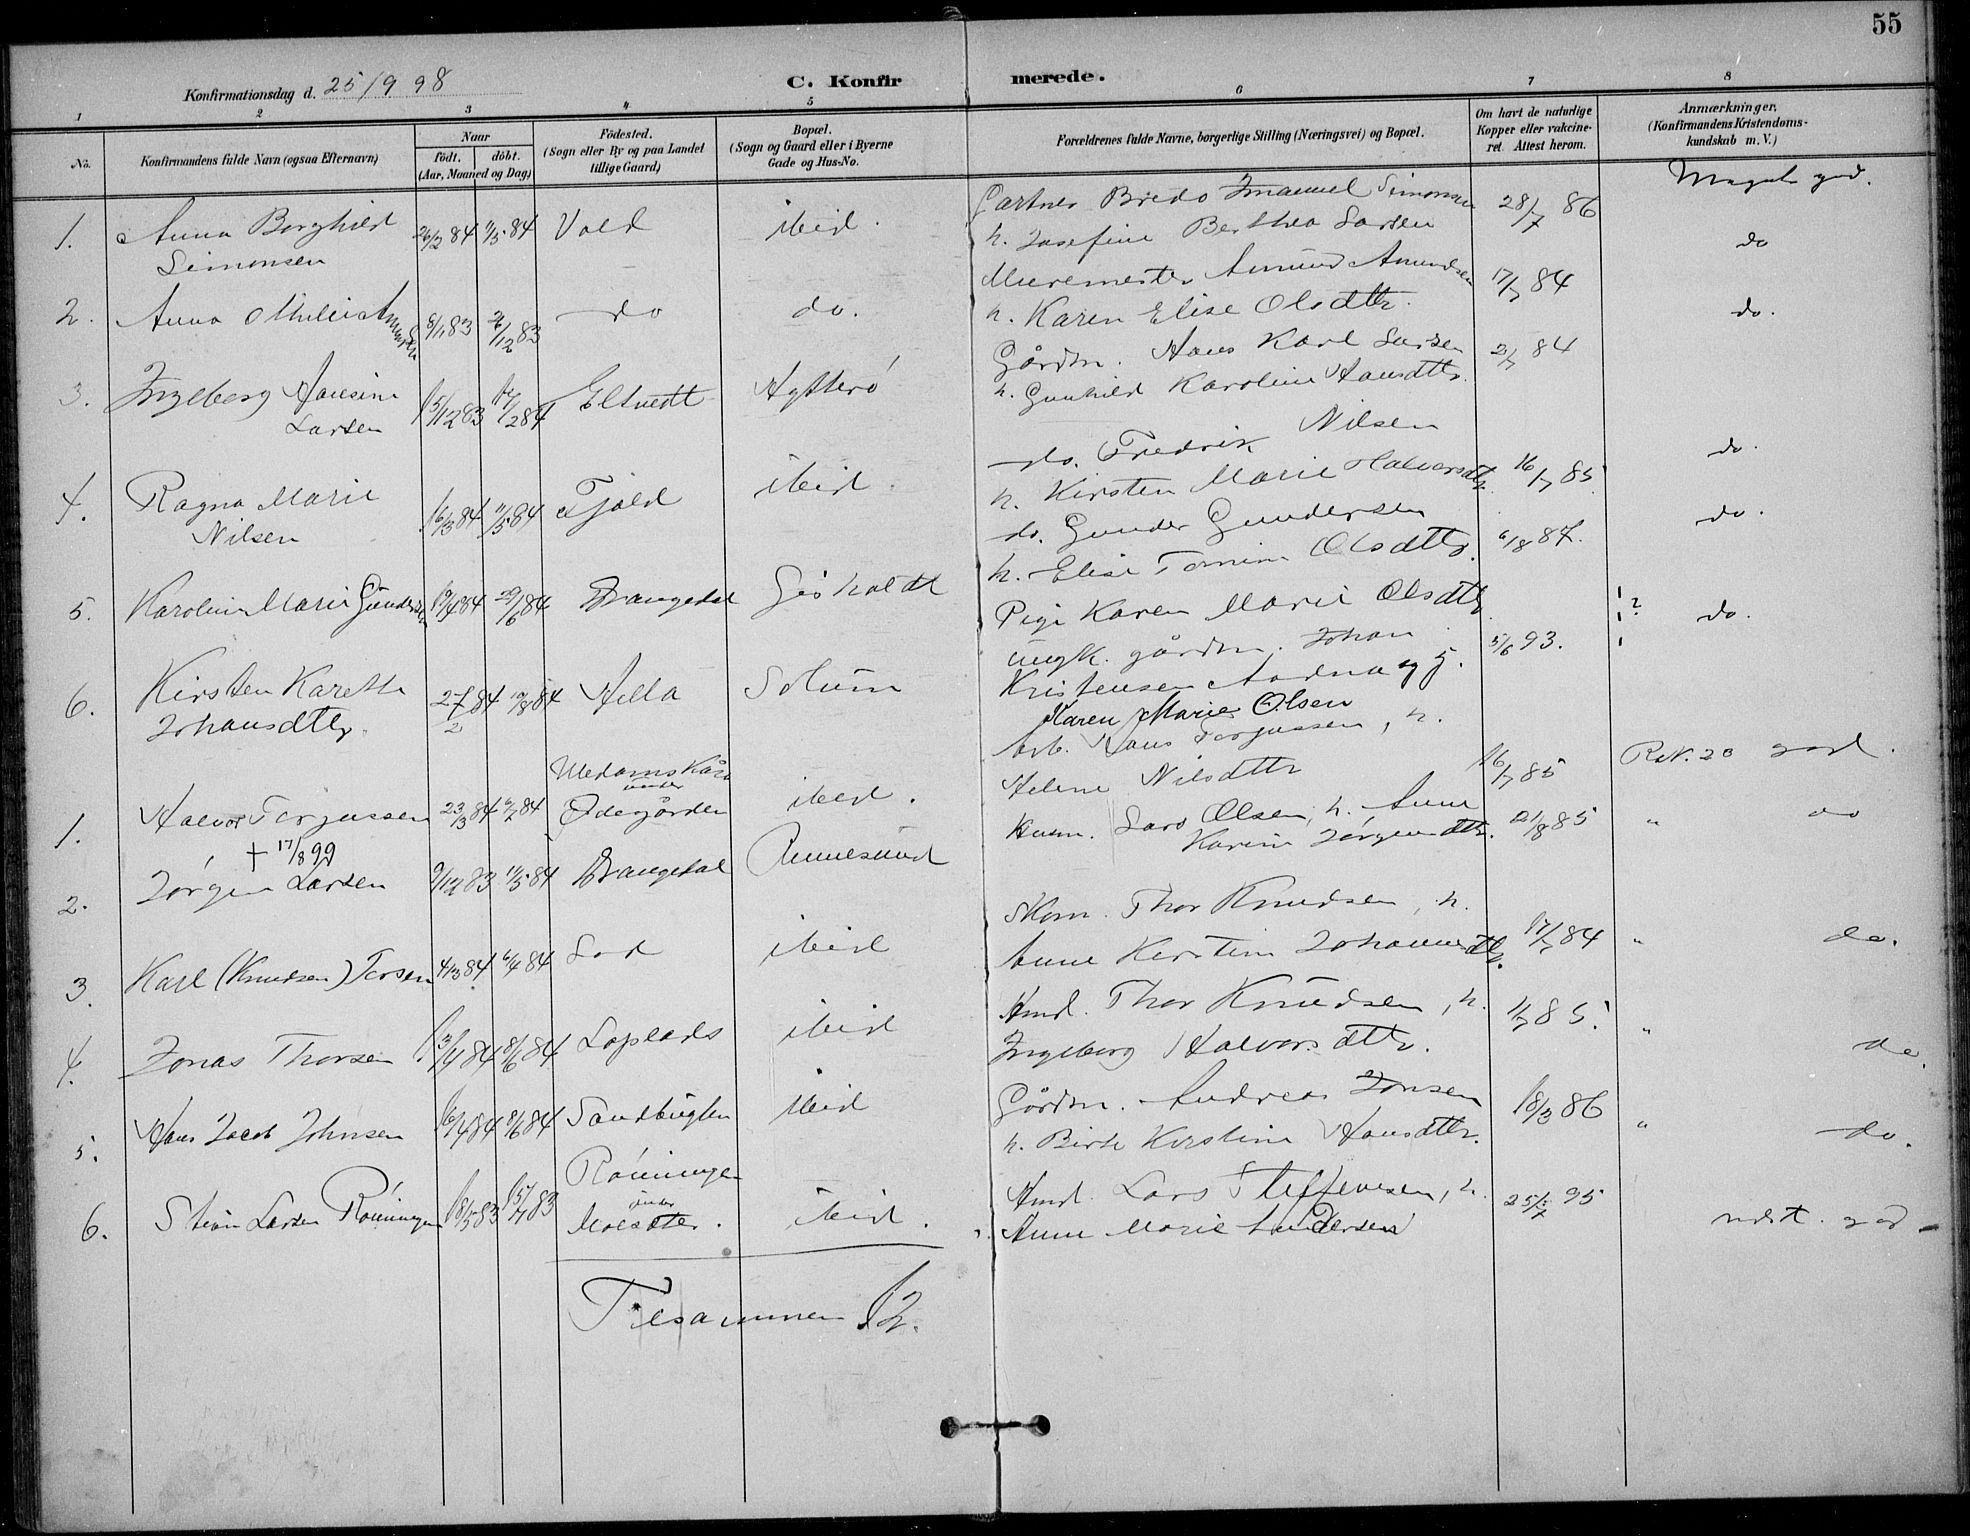 55
Konfirmationsdag d. 25/9 98
C. Konfirmerede.
1 2 3 4 5 6 7 8
No.
Konfirmandens fulde Navn (ogsaa Efternavn)
Naar
födt. döbt.
(Aar, Maaned og Dag)
Födested.
(Sogn eller By og paa Landet
tillige Gaard)
Bopæl.
(Sogn og Gaard eller i Byerne
Gade og Hus-No.
Forældrenes fulde Navne, borgerlige Stilling (Næringsvei) og Bopæl.
Om havt de naturlige
Kopper eller vakcine-
ret. Attest herom.
Anmærkninger.
(Konfirmandens Kristendoms-
kundskab m. V.)
1. Anna Borghild 26/2 84 11/5 84 Vold ibid. Gartner Bredo Imanuel Simonsen 28/7 86 Meget god.
Simonsen h. Josefine Berthea Larsen
2. Anna Othilie Amundsen 8/11 83 26/12 83 do do. Muremester Amund Amundsen 17/7 84 do
h. Karen Elise Olsdtr.
3. Ingeborg Hansine 15/12 83 17/2 84 Eltvedt Gårdm. Hans Karl Larsen 2/7 84 do.
Larsen h. Gunhild Karoline Hansdtr.
4. Ragna Marie 16/3 84 11/5 84 Fjeld ibid. do. Fredrik Nilsen 16/7 85 do.
Nilsen h. Kirsten Marie Halvorsdtr.
5. Karoline Marie Gundersen 19/4 84 29/6 84 Drangedal do. Gunder Gundersen 6/8 87. do.
h. Elise Tomine Olsdtr.
6. Kirsten Karette 27/2 84 10/8 84 Solum Pige Karen Marie Olsdtr. 5/6 93. ? do.
Johansdtr. ungk. gårdm. Johan
Kristensen
Karen Marie Olsen
1. Halvor Terjussen 23/3 84 84 under ibid. arb. Hans Terjussen, h. 16/7 85 god.
+ 17/8 99 Ødegården Helene Nilsdtr
2. Jørgen Larsen 9/12 83 11/5 84 Drangedal Husm. Lars Olsen, h. Anne 21/8 85 " do
Karine Jørgensdtr.
3. Karl (Knudsen) Torsen 4/3 84 6/4 84 ibid Skom. Thor Knudsen, h. 17/7 84 " do.
Anne Kerstine Johannesdtr.
4. Jonas Thorsen 13/4 84 8/6 84 Laplads ibid Hmd. Thor Knudsen, h. 85. " do
Ingeborg Halvorsdtr.
5. Hans Jacob Johnsen 16/4 84 8/6 84 Sandbugten ibid Gårdm. Andreas Jonsen 18/3 86 " do.
h. Birte Kirstine Hansdtr.
6. Larsen Röiningen 18/5 83 15/7 83 Röiningen ibid. Hmd. Lars Steffensen, h. 25/5 95 god
under Anne Marie Andersen
Tilsammen 12.